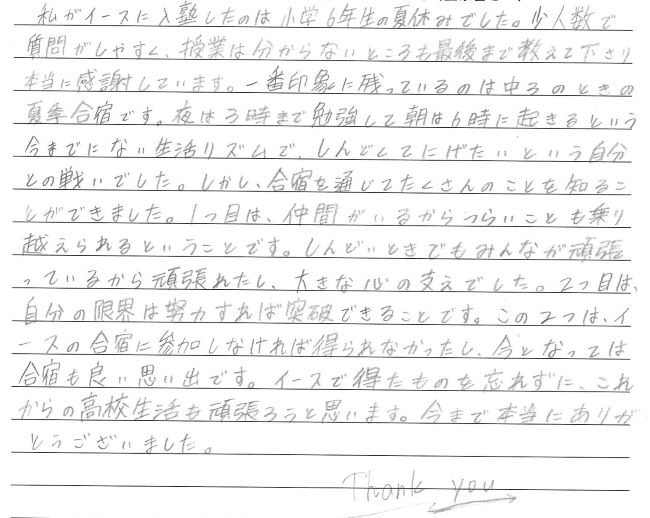 私がイースに入塾したのは小学6年生の夏休みでした。少人数で
質問がしやすく、授業は分からないところも最後まで教えて下さり
本当に感謝しています。一番印象に残っているのは中3のときの
夏季合宿です。夜は3時まで勉強して朝は6時に起きるという
今までにない生活リズムで、しんどくてにげたいという自分
との戦いでした。しかし、合宿を通じてたくさんのことを知るこ
とができました。1つ目は、仲間がいるからつらいことも乗り
越えられるということです。しんどいときでもみんなが頑張
っているから頑張れたし、大きな心の支えでした。2つ目は、
自分の限界は努力すれば突破できることです。この2つは、イ
ースの合宿に参加しなければ得られなかったし、今となっては
合宿も良い思い出です。イースで得たものを忘れずに、これ
からの高校生活も頑張ろうと思います。今まで本当にありが
とうございました。
Thank you